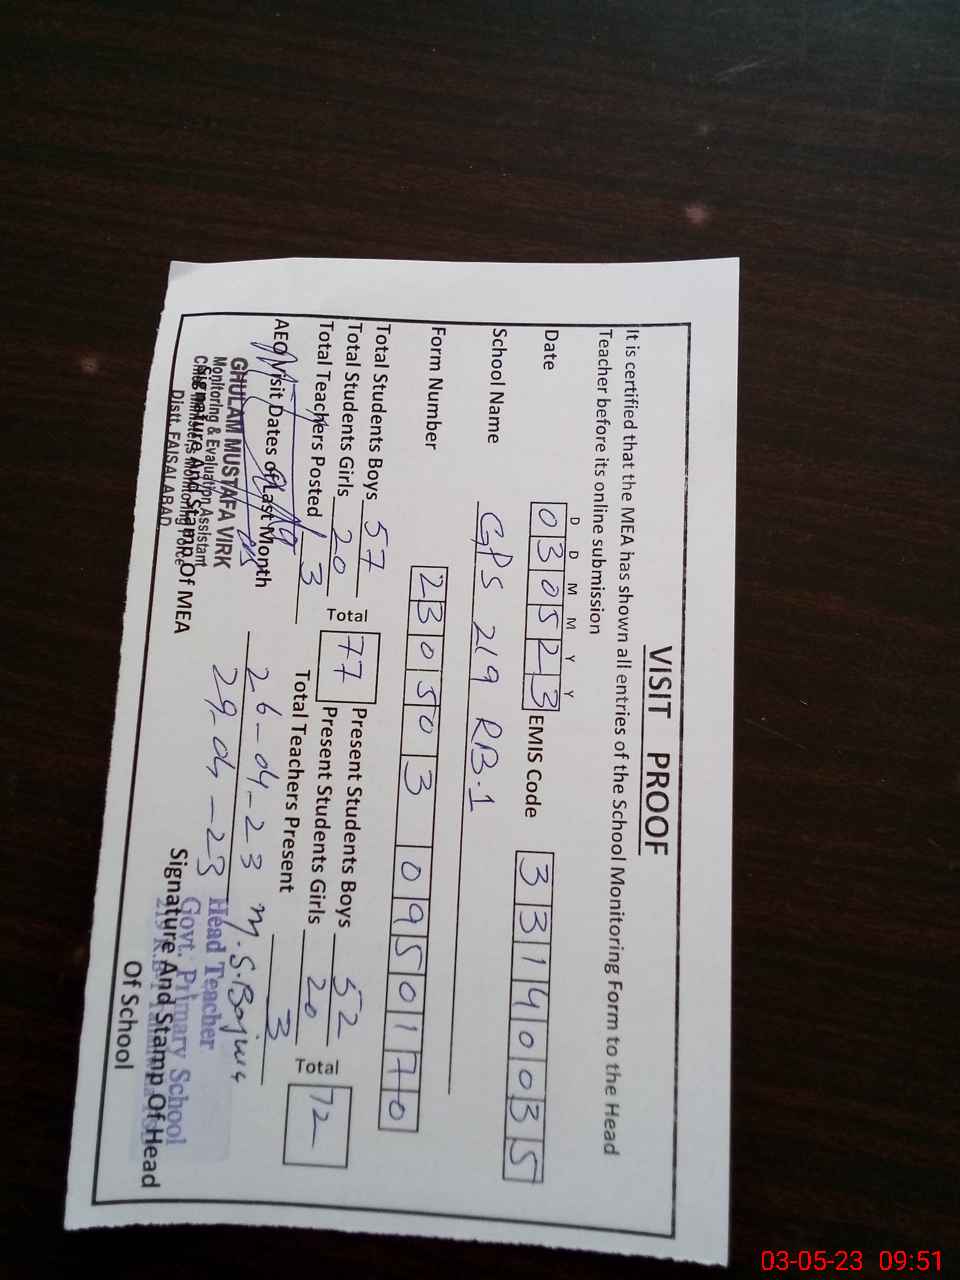 VISIT PROOF
It is certified that the MEA has shown all entries of the School Monitoring Form to the Head
Teacher before its online submission
D D M M Y Y
Date 030523 EMIS Code 33140035
School Name GPS 219 RB.1
Form Number 230503 0950170
Total Students Boys 57 Present Students Boys 52
Total Students Girls 20 Total 77 Present Students Girls 20 Total 72
Total Teachers Posted 3 Total Teachers Present 3
AEO Visit Dates of Last Month 26-04-23
29-04-23
M.S.Bajwa
GHULAM MUSTAFA VIRK
Monitoring & Evaluation Assistant
Chief Minister's Monitoring Force
Distt. FAISALABAD
Signature And Stamp Of MEA
Head Teacher
Govt. Primary School
219 R.B-1
Signature And Stamp Of Head
Of School
03-05-23 09:51